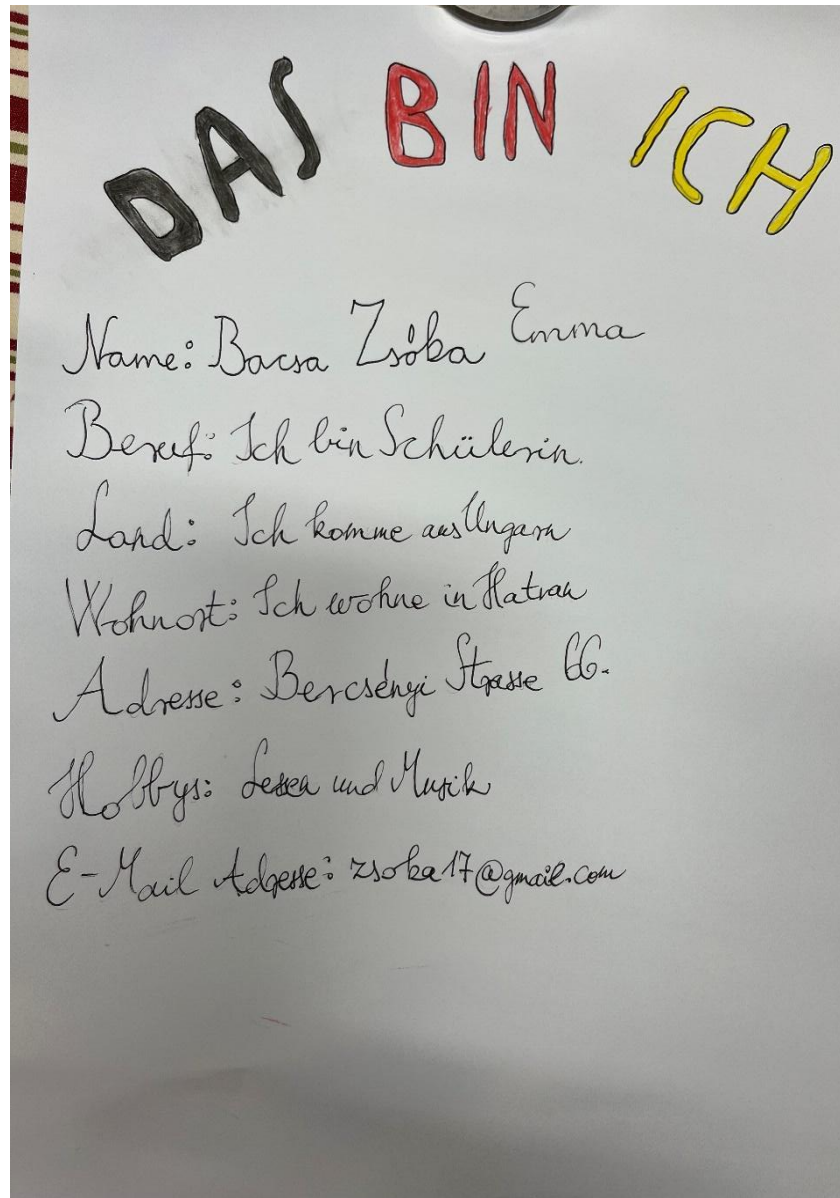 DAS BIN ICH
Name: Bacsa Zsóka Emma
Beruf: Ich bin Schülerin.
Land: Ich komme aus Ungarn
Wohnort: Ich wohne in Hatvan
Adresse: Bercsényi Strasse 66.
Hobbys: Lesen und Musik
E-Mail Adresse: zsoka17@gmail.com